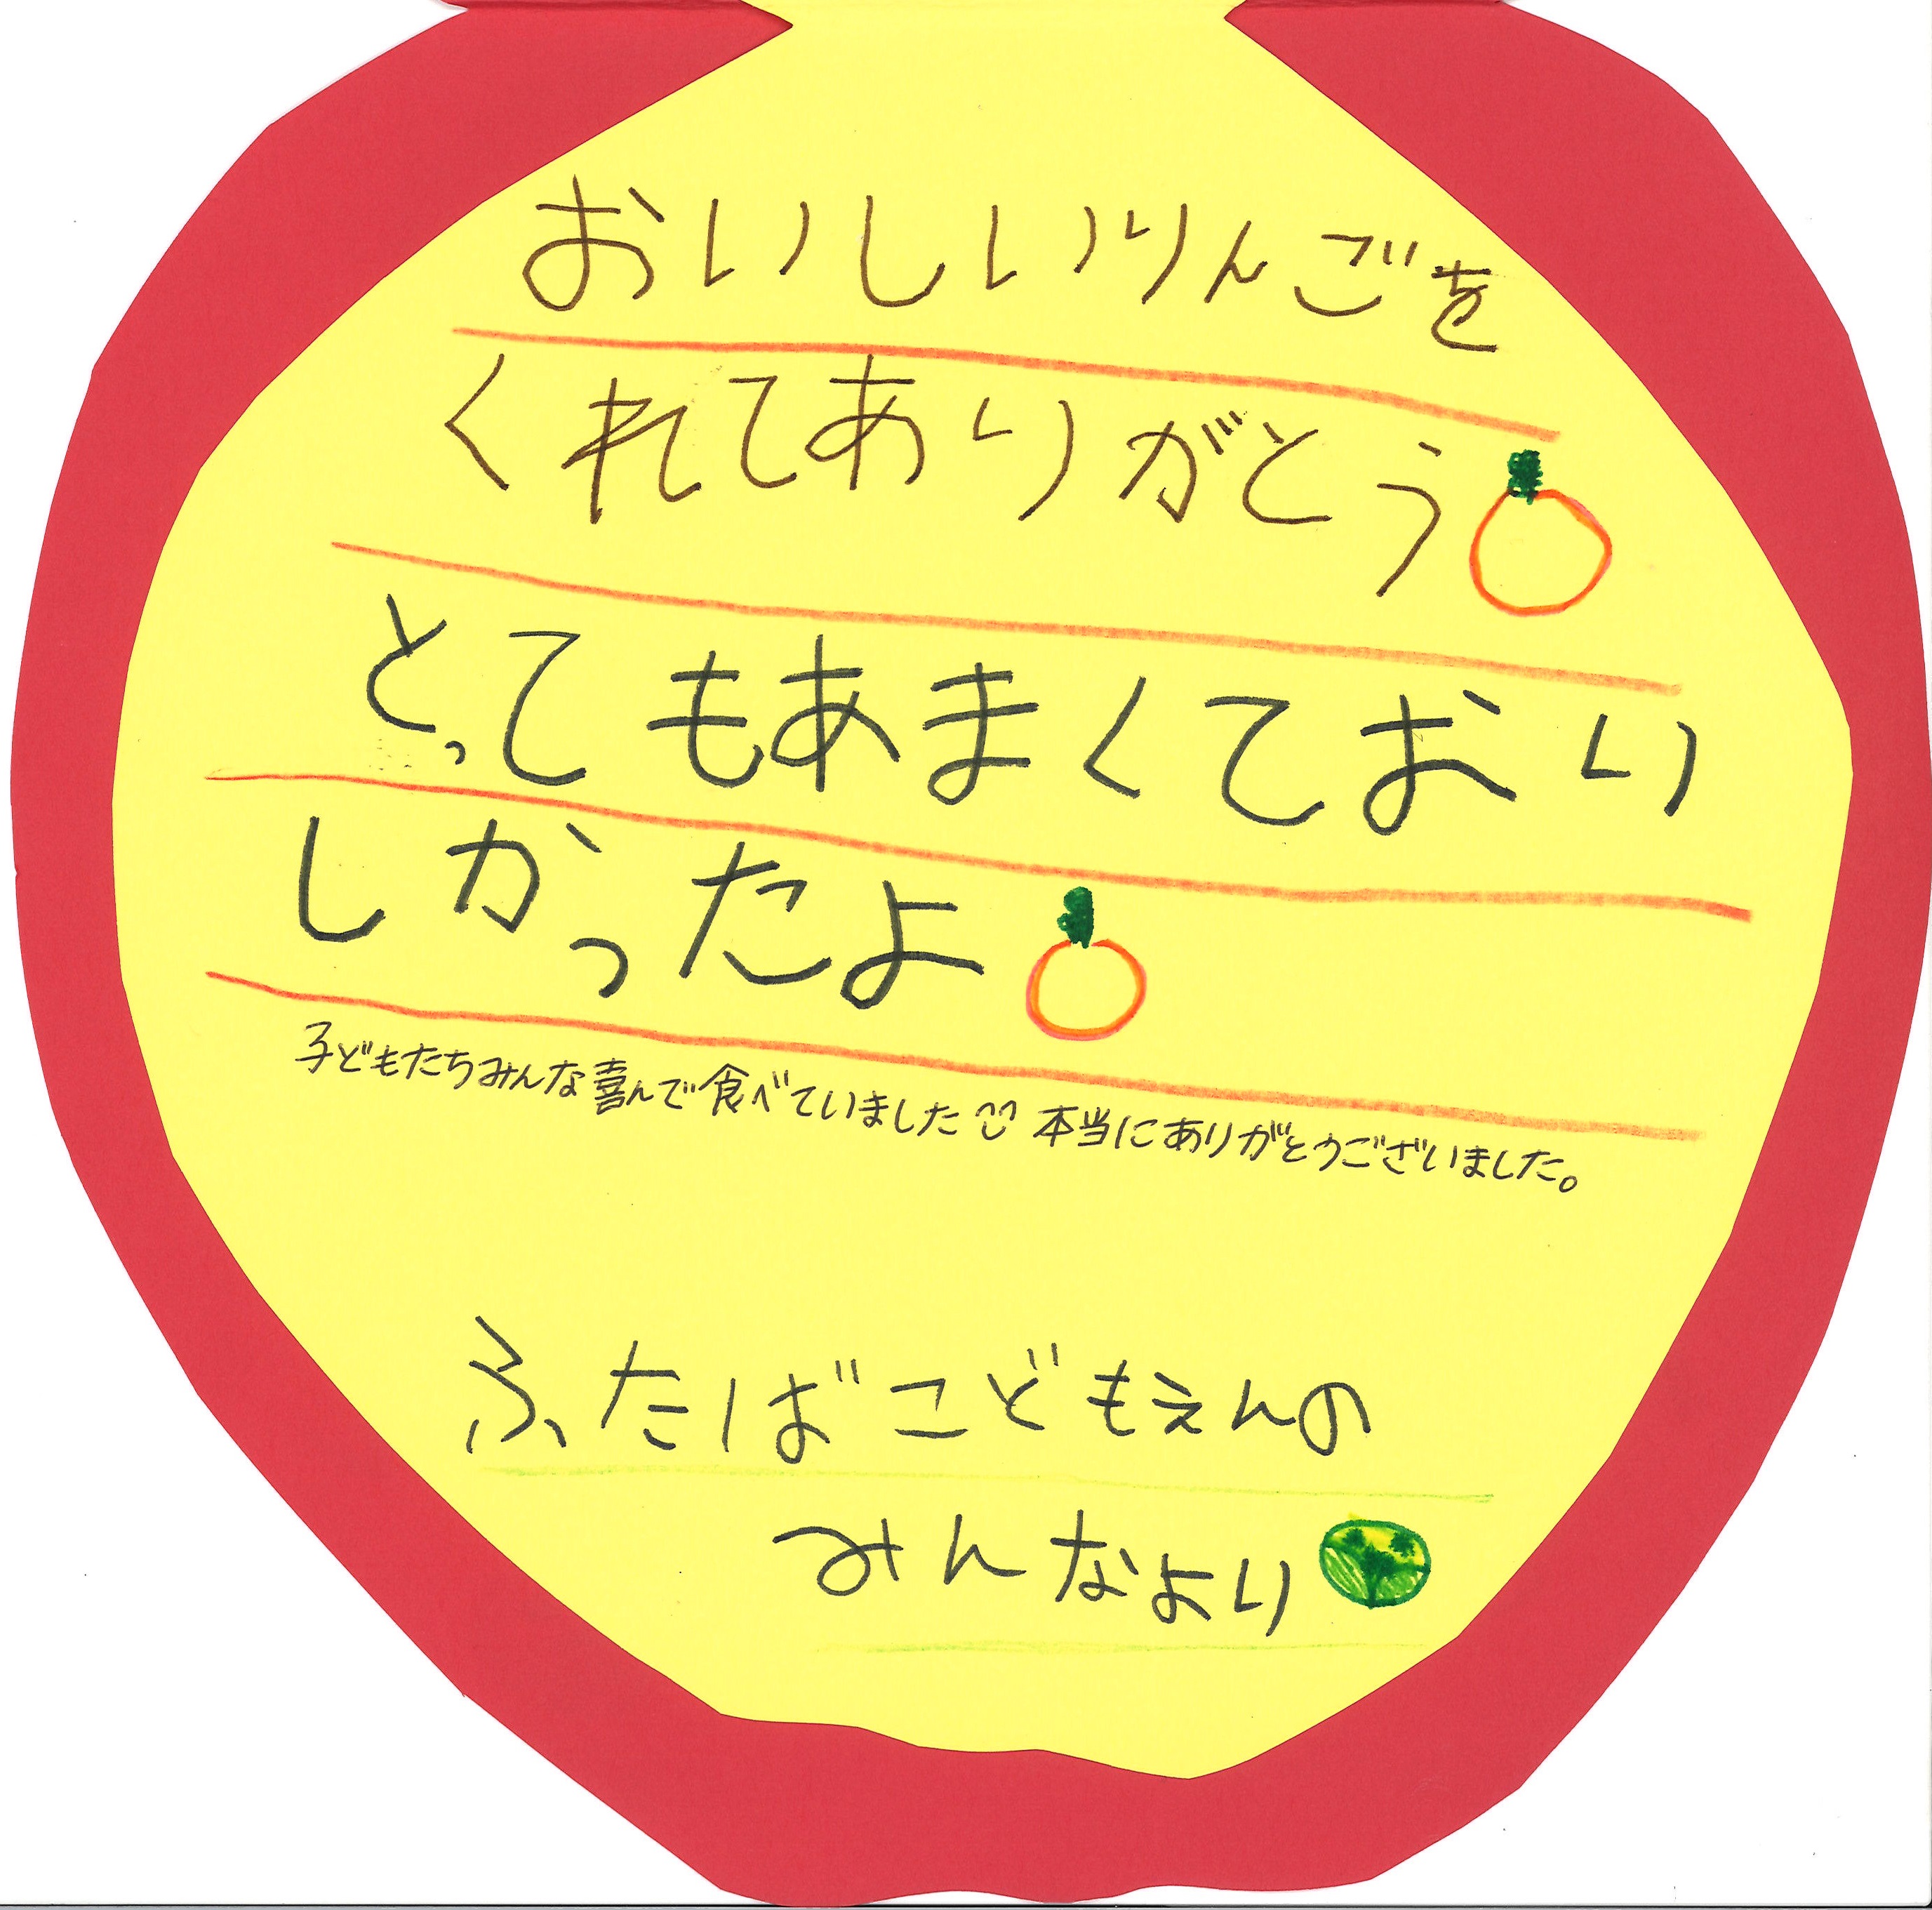 おいしいりんごを
くれてありがとう
とってもあまくておい
しかったよ
子どもたちみんな喜んで食べていました 本当にありがとうございました。
ふたばこどもえんの
みんなより